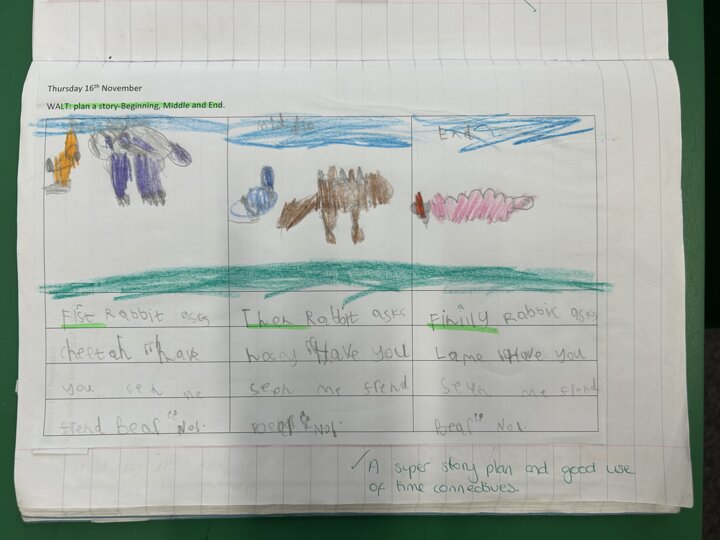 Thursday 16th November
WALT: plan a story-Beginning, Middle and End.
End
Fist Rabbit asks
cheetah "have
you seh me
frend Bear "No!.
Then Rabbit asks
"Have you
seeh me frend
Bear " No!.
Finilly Rabbit asks
Lame "Have you
Seeh me frend
Bear " No!.
✓ A super story plan and good use
of time connectives.